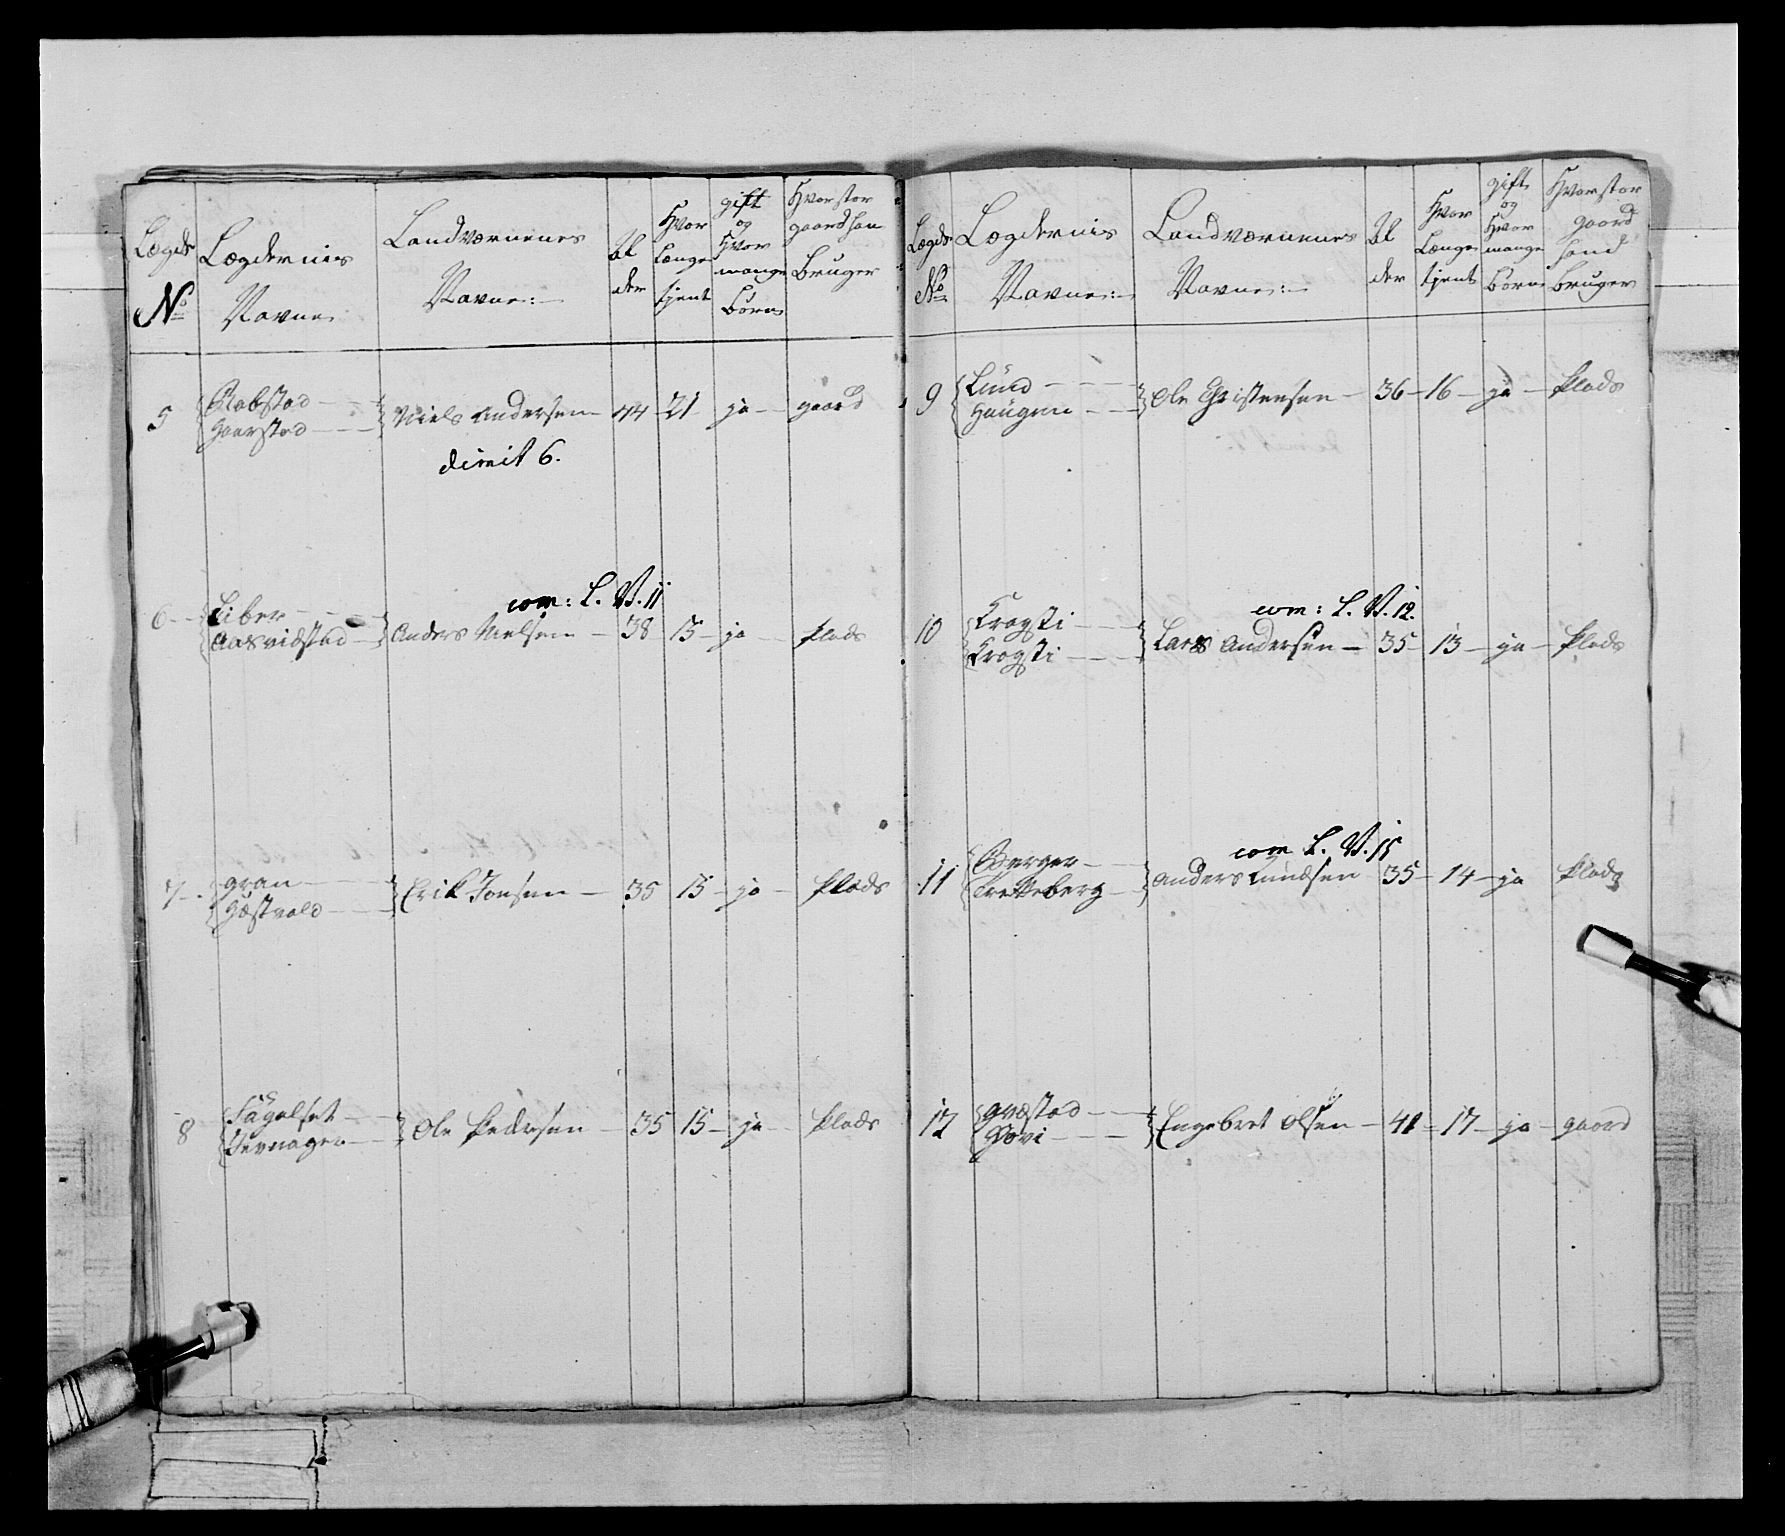 Lægds No
Lægdernis Navne
Landværnenes Navne:
Al der
Hvor Længe tjent
gift og Hvor mange Børn
Hvor stor gaard han Bruger
5 Robstad Gaarstad Niels Andersen 44 21 ja gaard
dimit 6.
com: L. V. 11
6 Liber Aasvidstad Anders Nielsen 38 15 ja Plads
7 gran Gæstvold Erik Jonsen 35 15 ja Plads
8 Ole Pedersen 35 15 ja Plads
Lægds No
Lægdernis Navne:
Landværnenes Navne:
Al der
Hvor Længe tjent
gift og Hvor mange Børn
Hvor stor gaard hand Bruger
9 Lund Haugen Ole Christensen 36 16 ja Plads
com: L. V. 12.
10 Krogsti Krogsti Lars Andersen 35 13 ja Plads
com L. V. 15
11 Berger Tretteberg Anders Knudsen 35 14 ja Plads
12 Hovi Engebret Olsen 41 17 ja gaard